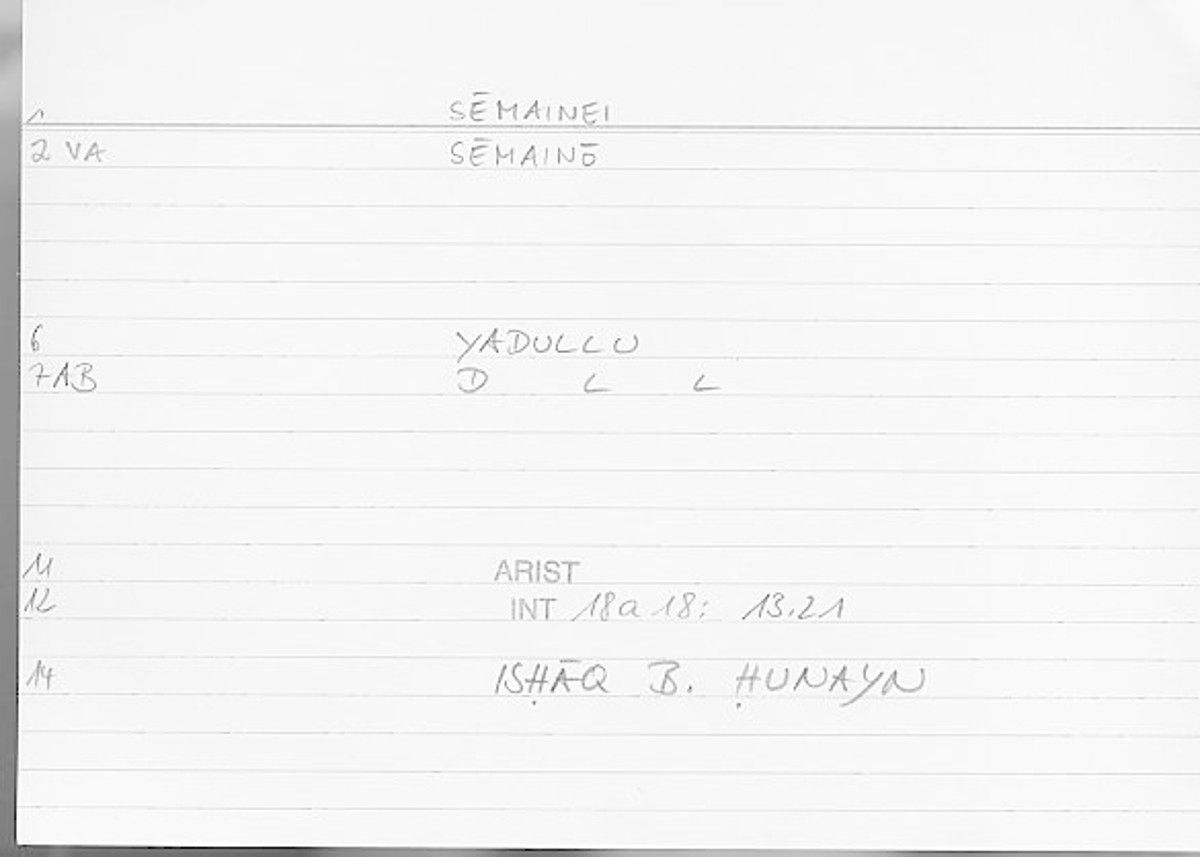 1 SĒMAINEI
2 VA SĒMAINŌ
6 YADULLU
7AB D L L
11 ARIST
12 INT 18a 18: 13.21
14 ISḤĀQ B. ḤUNAYN